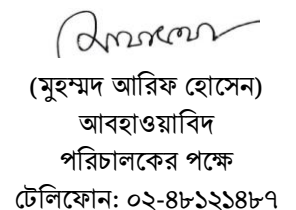 (মুহম্মদ আরিফ হোসেন)
আবহাওয়াবিদ
পরিচালকের পক্ষে
টেলিফোন: ০২-৪৮১২১৪৮৭